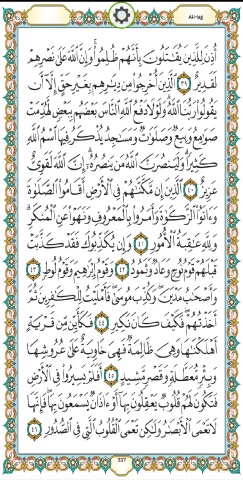 Al-Hajj
أُذِنَ لِلَّذِينَ يُقَٰتَلُونَ بِأَنَّهُمْ ظُلِمُوا۟ وَإِنَّ ٱللَّهَ عَلَىٰ نَصْرِهِمْ
لَقَدِيرٌ ٣٩ ٱلَّذِينَ أُخْرِجُوا۟ مِن دِيَٰرِهِم بِغَيْرِ حَقٍّ إِلَّآ أَن
يَقُولُوا۟ رَبُّنَا ٱللَّهُ وَلَوْلَا دَفْعُ ٱللَّهِ ٱلنَّاسَ بَعْضَهُم بِبَعْضٍ لَّهُدِّمَتْ
صَوَٰمِعُ وَبِيَعٌ وَصَلَوَٰتٌ وَمَسَٰجِدُ يُذْكَرُ فِيهَا ٱسْمُ ٱللَّهِ
كَثِيرًا وَلَيَنصُرَنَّ ٱللَّهُ مَن يَنصُرُهُۥٓ إِنَّ ٱللَّهَ لَقَوِىٌّ
عَزِيزٌ ٤٠ ٱلَّذِينَ إِن مَّكَّنَّٰهُمْ فِى ٱلْأَرْضِ أَقَامُوا۟ ٱلصَّلَوٰةَ
وَءَاتَوُا۟ ٱلزَّكَوٰةَ وَأَمَرُوا۟ بِٱلْمَعْرُوفِ وَنَهَوْا۟ عَنِ ٱلْمُنكَرِ
وَلِلَّهِ عَٰقِبَةُ ٱلْأُمُورِ ٤١ وَإِن يُكَذِّبُوكَ فَقَدْ كَذَّبَتْ
قَبْلَهُمْ قَوْمُ نُوحٍ وَعَادٌ وَثَمُودُ ٤٢ وَقَوْمُ إِبْرَٰهِيمَ وَقَوْمُ لُوطٍ ٤٣
وَأَصْحَٰبُ مَدْيَنَ وَكُذِّبَ مُوسَىٰ فَأَمْلَيْتُ لِلْكَٰفِرِينَ ثُمَّ
أَخَذْتُهُمْ فَكَيْفَ كَانَ نَكِيرِ ٤٤ فَكَأَيِّن مِّن قَرْيَةٍ
أَهْلَكْنَٰهَا وَهِىَ ظَالِمَةٌ فَهِىَ خَاوِيَةٌ عَلَىٰ عُرُوشِهَا
وَبِئْرٍ مُّعَطَّلَةٍ وَقَصْرٍ مَّشِيدٍ ٤٥ أَفَلَمْ يَسِيرُوا۟ فِى ٱلْأَرْضِ
فَتَكُونَ لَهُمْ قُلُوبٌ يَعْقِلُونَ بِهَآ أَوْ ءَاذَانٌ يَسْمَعُونَ بِهَا فَإِنَّهَا
لَا تَعْمَى ٱلْأَبْصَٰرُ وَلَٰكِن تَعْمَى ٱلْقُلُوبُ ٱلَّتِى فِى ٱلصُّدُورِ ٤٦
337